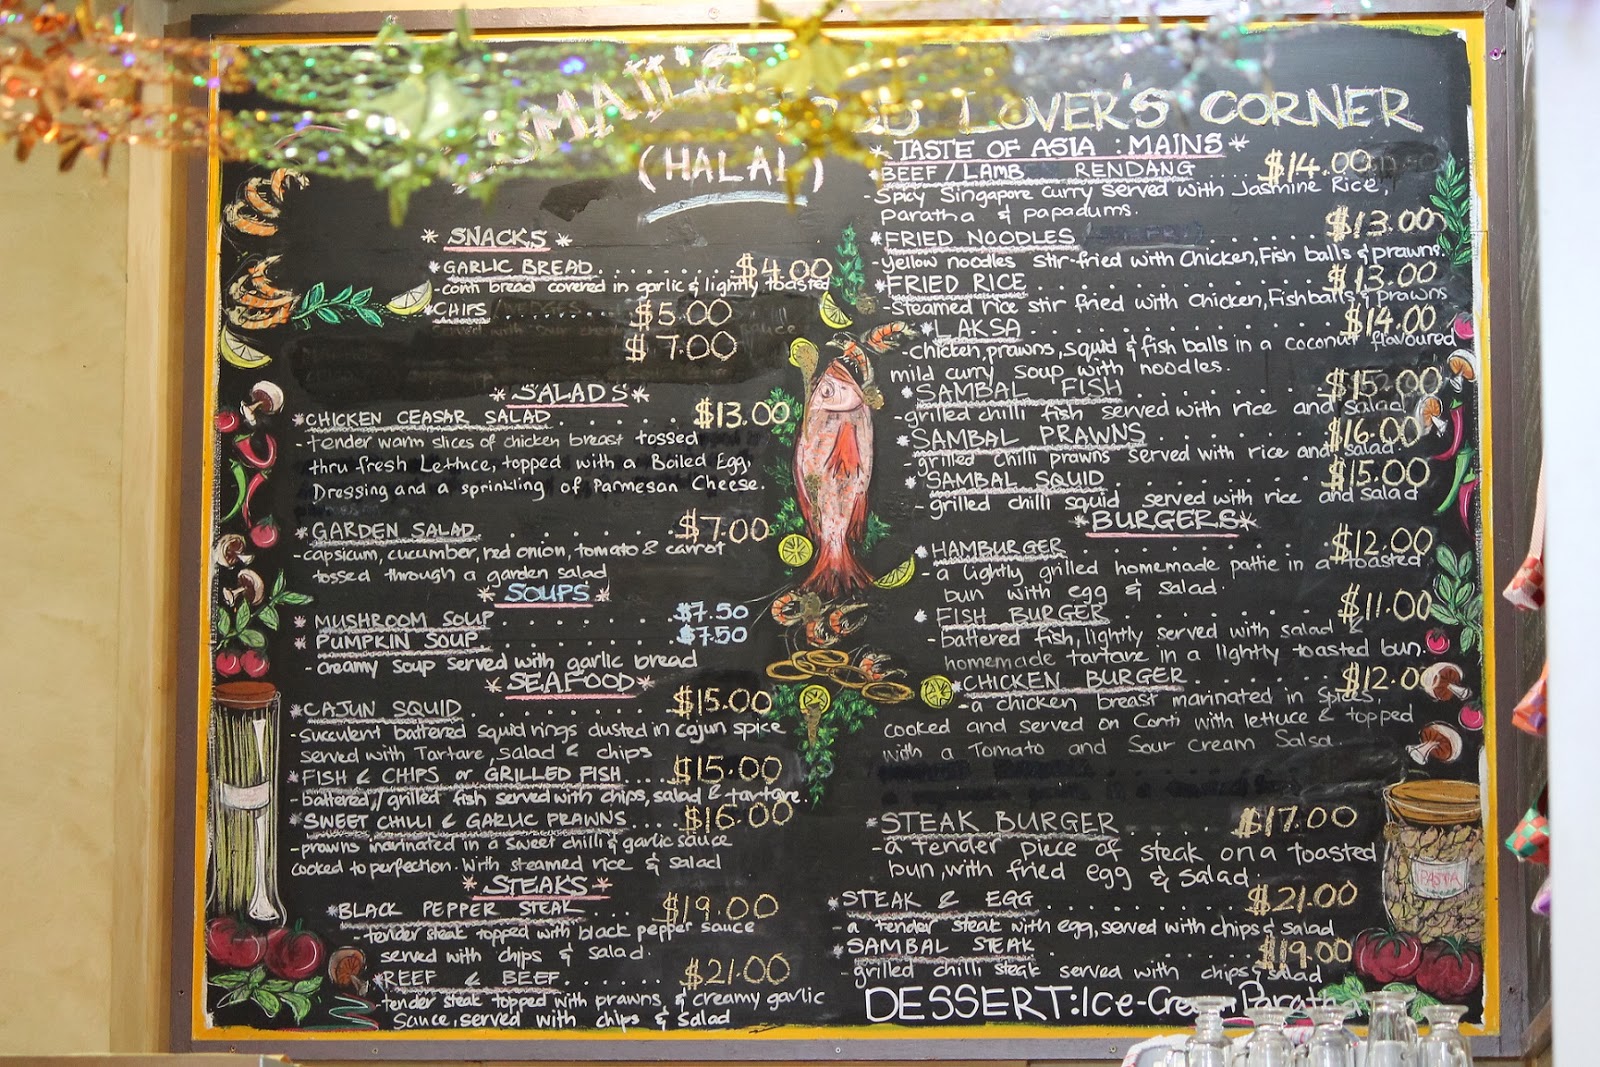 SMAIL'S LOVER'S CORNER
(HALAL)
* SNACKS *
* GARLIC BREAD . . . . . . . $4.00
- conti bread covered in garlic & lightly toasted
* CHIPS $5.00
$7.00
* SALADS *
* CHICKEN CEASAR SALAD . . . . . $13.00
- tender warm slices of chicken breast tossed
thru fresh Lettuce, topped with a Boiled Egg,
Dressing and a sprinkling of Parmesan Cheese.
* GARDEN SALAD . . . . . . . $7.00
- capsicum, cucumber, red onion, tomato & carrot
tossed through a garden salad
* SOUPS *
* MUSHROOM SOUP . . . . . . $7.50
* PUMPKIN SOUP . . . . . . $7.50
- creamy soup served with garlic bread
* SEAFOOD *
* CAJUN SQUID . . . . . . . $15.00
- Succulent battered squid rings dusted in cajun spice
served with Tartare, salad & chips
* FISH & CHIPS or GRILLED FISH . . . $15.00
- battered / grilled fish served with chips, salad & tartare.
* SWEET CHILLI & GARLIC PRAWNS . . . $16.00
- prawns marinated in a sweet chilli & garlic sauce
cooked to perfection. With steamed rice & salad
* STEAKS *
* BLACK PEPPER STEAK . . . $19.00
- tender steak topped with black pepper sauce
served with chips & salad.
* REEF & BEEF . . . . . . $21.00
- tender steak topped with prawns, & creamy garlic
sauce, served with chips & salad
* TASTE OF ASIA : MAINS *
* BEEF/LAMB RENDANG $14.00
- Spicy Singapore curry served with Jasmine Rice,
paratha & papadums.
* FRIED NOODLES . . . . . . $13.00
- yellow noodles stir-fried with Chicken, Fish balls & prawns.
* FRIED RICE . . . . . . . $13.00
- steamed rice stir fried with chicken, Fishballs & Prawns
* LAKSA . . . . . . . $14.00
- chicken, prawns, squid & fish balls in a coconut flavoured
mild curry soup with noodles.
* SAMBAL FISH . . . . . . $15.00
- grilled chilli fish served with rice and salad
* SAMBAL PRAWNS . . . . . . $16.00
- grilled chilli prawns served with rice and salad.
* SAMBAL SQUID . . . . . . $15.00
- grilled chilli squid served with rice and salad
* BURGERS *
* HAMBURGER . . . . . . . $12.00
- a lightly grilled homemade pattie in a toasted
bun with egg & salad.
* FISH BURGER . . . . . . $11.00
- battered fish, lightly served with salad &
homemade tartare in a lightly toasted bun.
* CHICKEN BURGER . . . . . . $12.0
- a chicken breast marinated in spices,
cooked and served on Conti with lettuce & topped
with a Tomato and Sour Cream Salsa.
* STEAK BURGER . . . . $17.00
- a tender piece of steak on a toasted
bun, with fried egg & salad.
* STEAK & EGG . . . . . . $21.00
- a tender steak with egg, served with chips & salad
* SAMBAL STEAK . . . . . . $19.00
- grilled chilli steak served with chips & salad
DESSERT: Ice-Cream Parath
PASTA